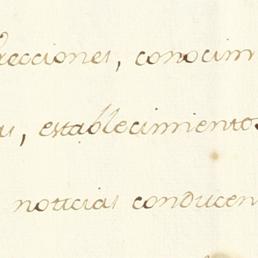 recciones, conocim
s, establecimientos
noticias conducen